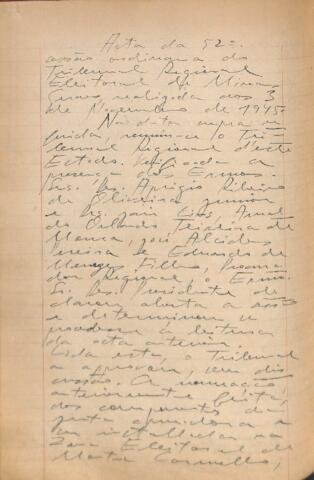 Acta da 52ª
sessão ordinaria do
Tribunal Regional
Eleitoral de Minas
Geraes realizada aos 3
de Novembro de 1945.
Na data supra re-
ferida, reuniu-se o Tri-
bunal Regional d'este
Estado. Verificada a
presença dos Exmos.
Srs. Des. Aprigio Ribeiro
de Oliveira Junior
e Drs. José
do Orlando Teixeira da
Costa, José Alcides
Pereira e Eduardo de
Menezes Filho, Procura-
dor Regional, o Exmo.
Sr. Des. Presidente de-
clarou aberta a sessão
e determinou se
procedesse á leitura
da acta anterior.
Lida esta, o Tribunal
a approvou, sem dis-
cussão. A nomeação
anteriormente feita,
dos componentes da
junta apuradora a
ser installada na
Zona Eleitoral de